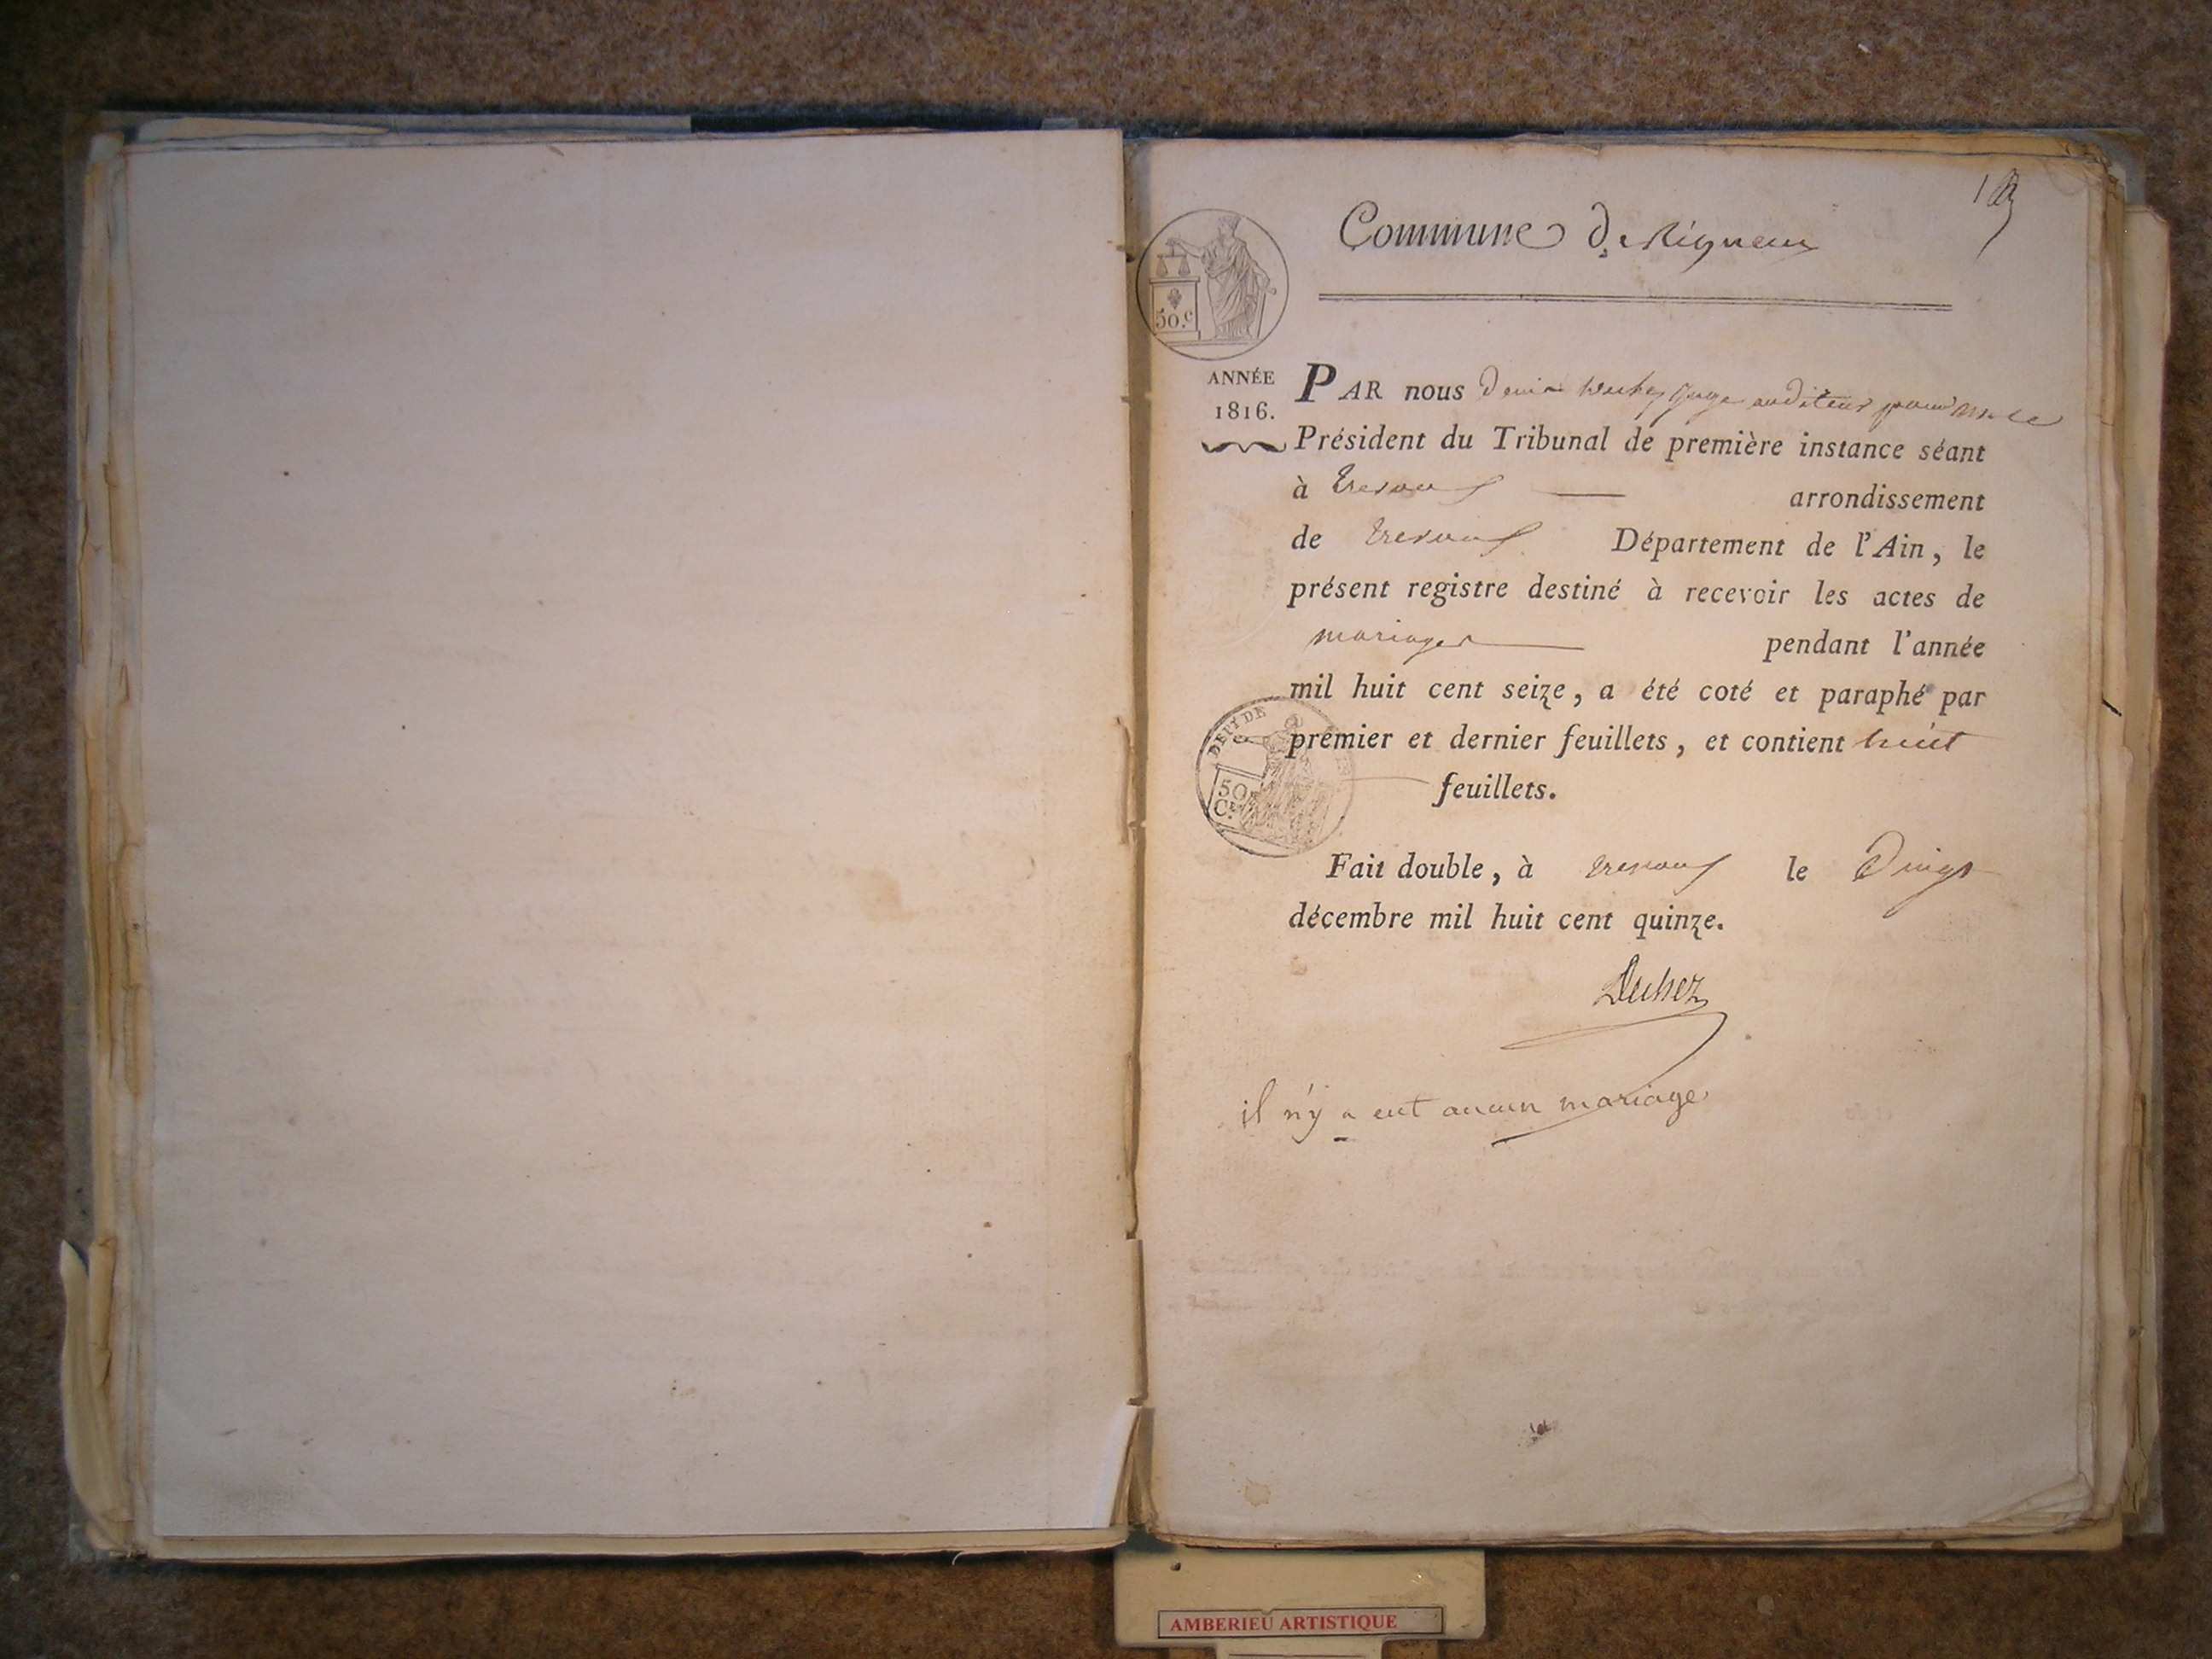 Commune de Rigneux
50.c
ANNÉE
1816.
PAR nous Denis juge auditeur pour Mr le
Président du Tribunal de première instance séant
à trevoux arrondissement
de trevoux Département de l'Ain, le
présent registre destiné à recevoir les actes de
mariages pendant l'année
mil huit cent seize, a été coté et paraphé par
premier et dernier feuillets, et contient huit
feuillets.
50
Cs.
Fait double, à trevoux le vingt
décembre mil huit cent quinze.
il n'y a eut aucun mariage
AMBERIEU ARTISTIQUE